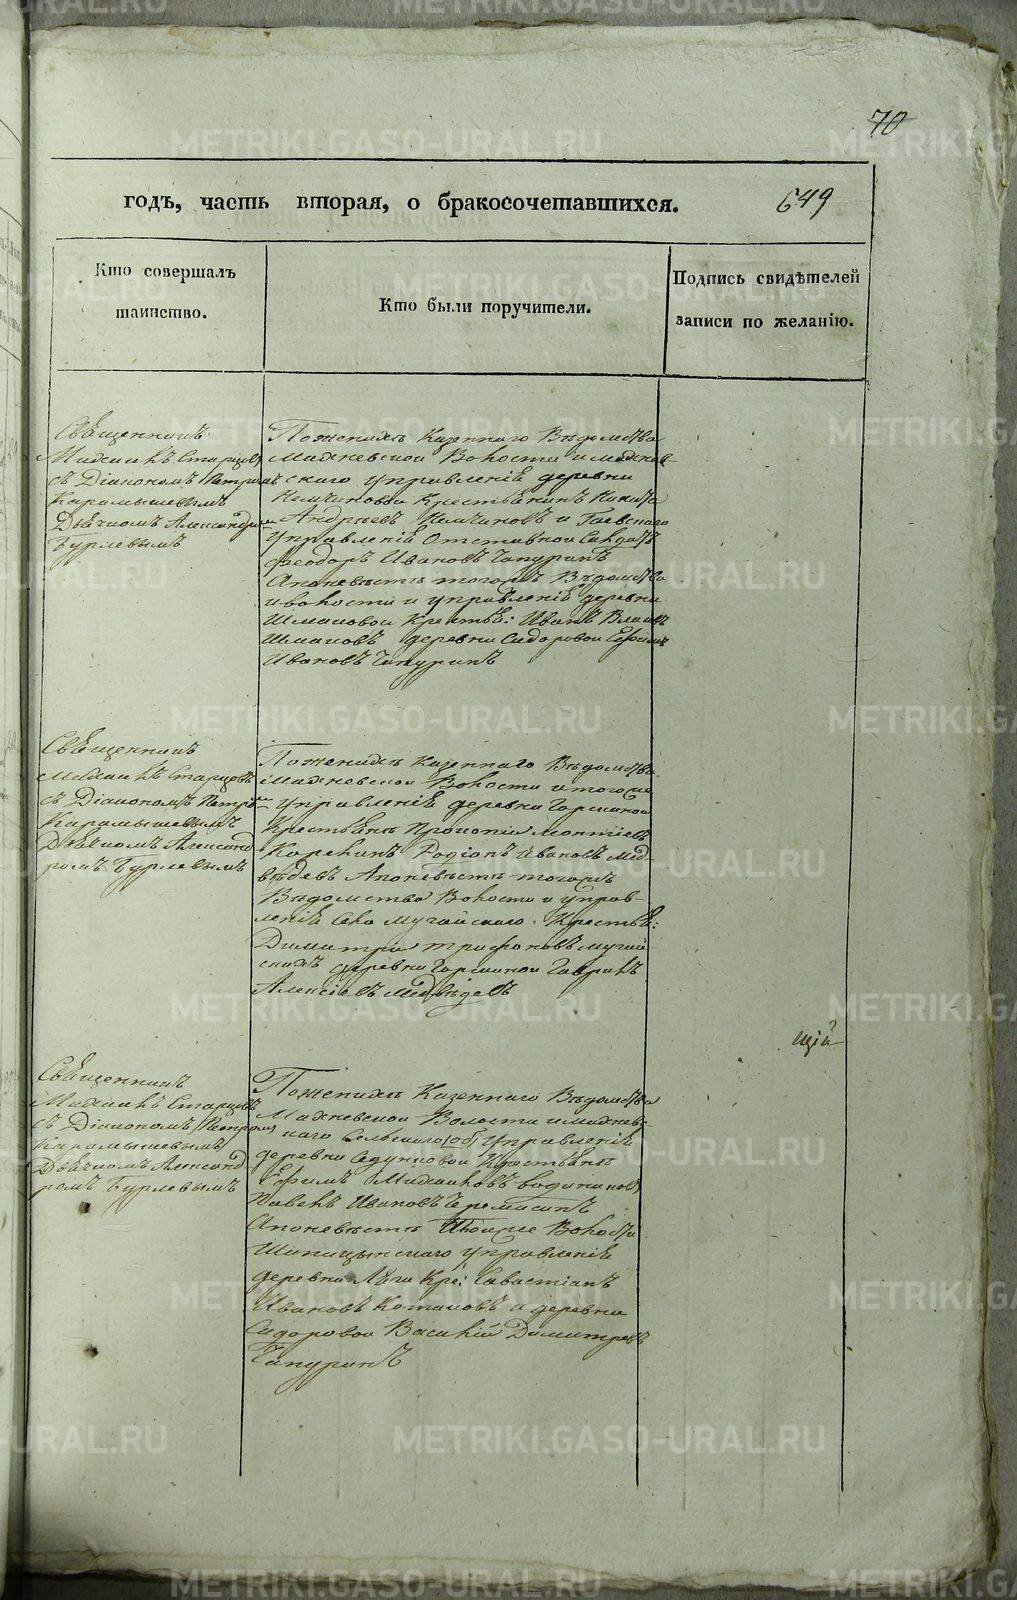 70
годъ, часть вторая, о бракосочетавшихся.
649
Кто совершалъ
таинство.
Кто были поручители.
Подпись свидѣтелей
записи по желанію.
Священникъ
Михаилъ Старцовъ
съ Діакономъ Петромъ
Карамышевымъ
Дьячкомъ Александромъ
Бурлевымъ
По женихѣ Казеннаго Вѣдомства
Махневской Волости и махнев-
скаго управленія деревни
Кемчиновой Крестьянинъ Никита
Андреевъ Кемчиновъ и Гаевскаго
управленія Отставной Салдатъ
Феодоръ Ивановъ Чапуринъ
А по невѣстѣ тогожъ Вѣдомства
и волости и управленія деревни
Шмаковой Крестья: Иванъ
Шмаковъ деревни Сидоровой Ефимъ
Ивановъ Чапуринъ
Священникъ
Михаилъ Старцовъ
съ Діакономъ Петромъ
Карамышевымъ
Дьячкомъ Александ
ромъ Бурлевымъ
По женихѣ Казеннаго Вѣдомства
Махневской Волости и тогоже
управленія деревни Горсткой
Крестьяне Прокопій
Корелинъ Родіонъ Ивановъ Мед-
вѣдевъ А по невѣстѣ тогожъ
Вѣдомства Волости и управ-
ленія Села Мугайскаго Крестья:
Димитрій Трифоновъ Мугай
скихъ деревни Горсткой Гаврилъ
Алексіевъ Медвѣдевъ
щій
Священникъ
Михаилъ Старцовъ
съ Діакономъ Петромъ
Карамышевымъ
Дьячкомъ Александ
ромъ Бурлевымъ
По женихѣ Казеннаго Вѣдомства
Махневской Волости и махнев
каго Сельскаго управленія
деревни Крестьяне
Ефимъ Михаиловъ
Павелъ Ивановъ Черемисинъ
А по невѣстѣ Волости
Шипицынскаго управленія
деревни Луги Кре: Савастіанъ
Ивановъ и деревни
Сидоровой Василій Димитрев
Чапуринъ
METRIKI.GASO-URAL.RU